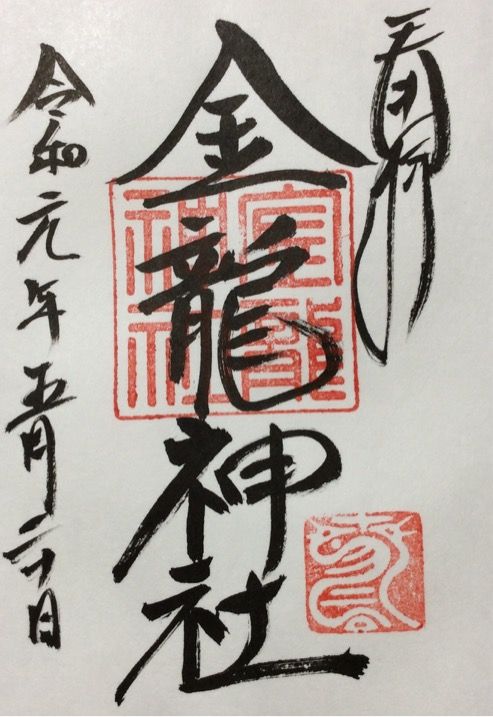 金龍神社
令和元年五月二十日